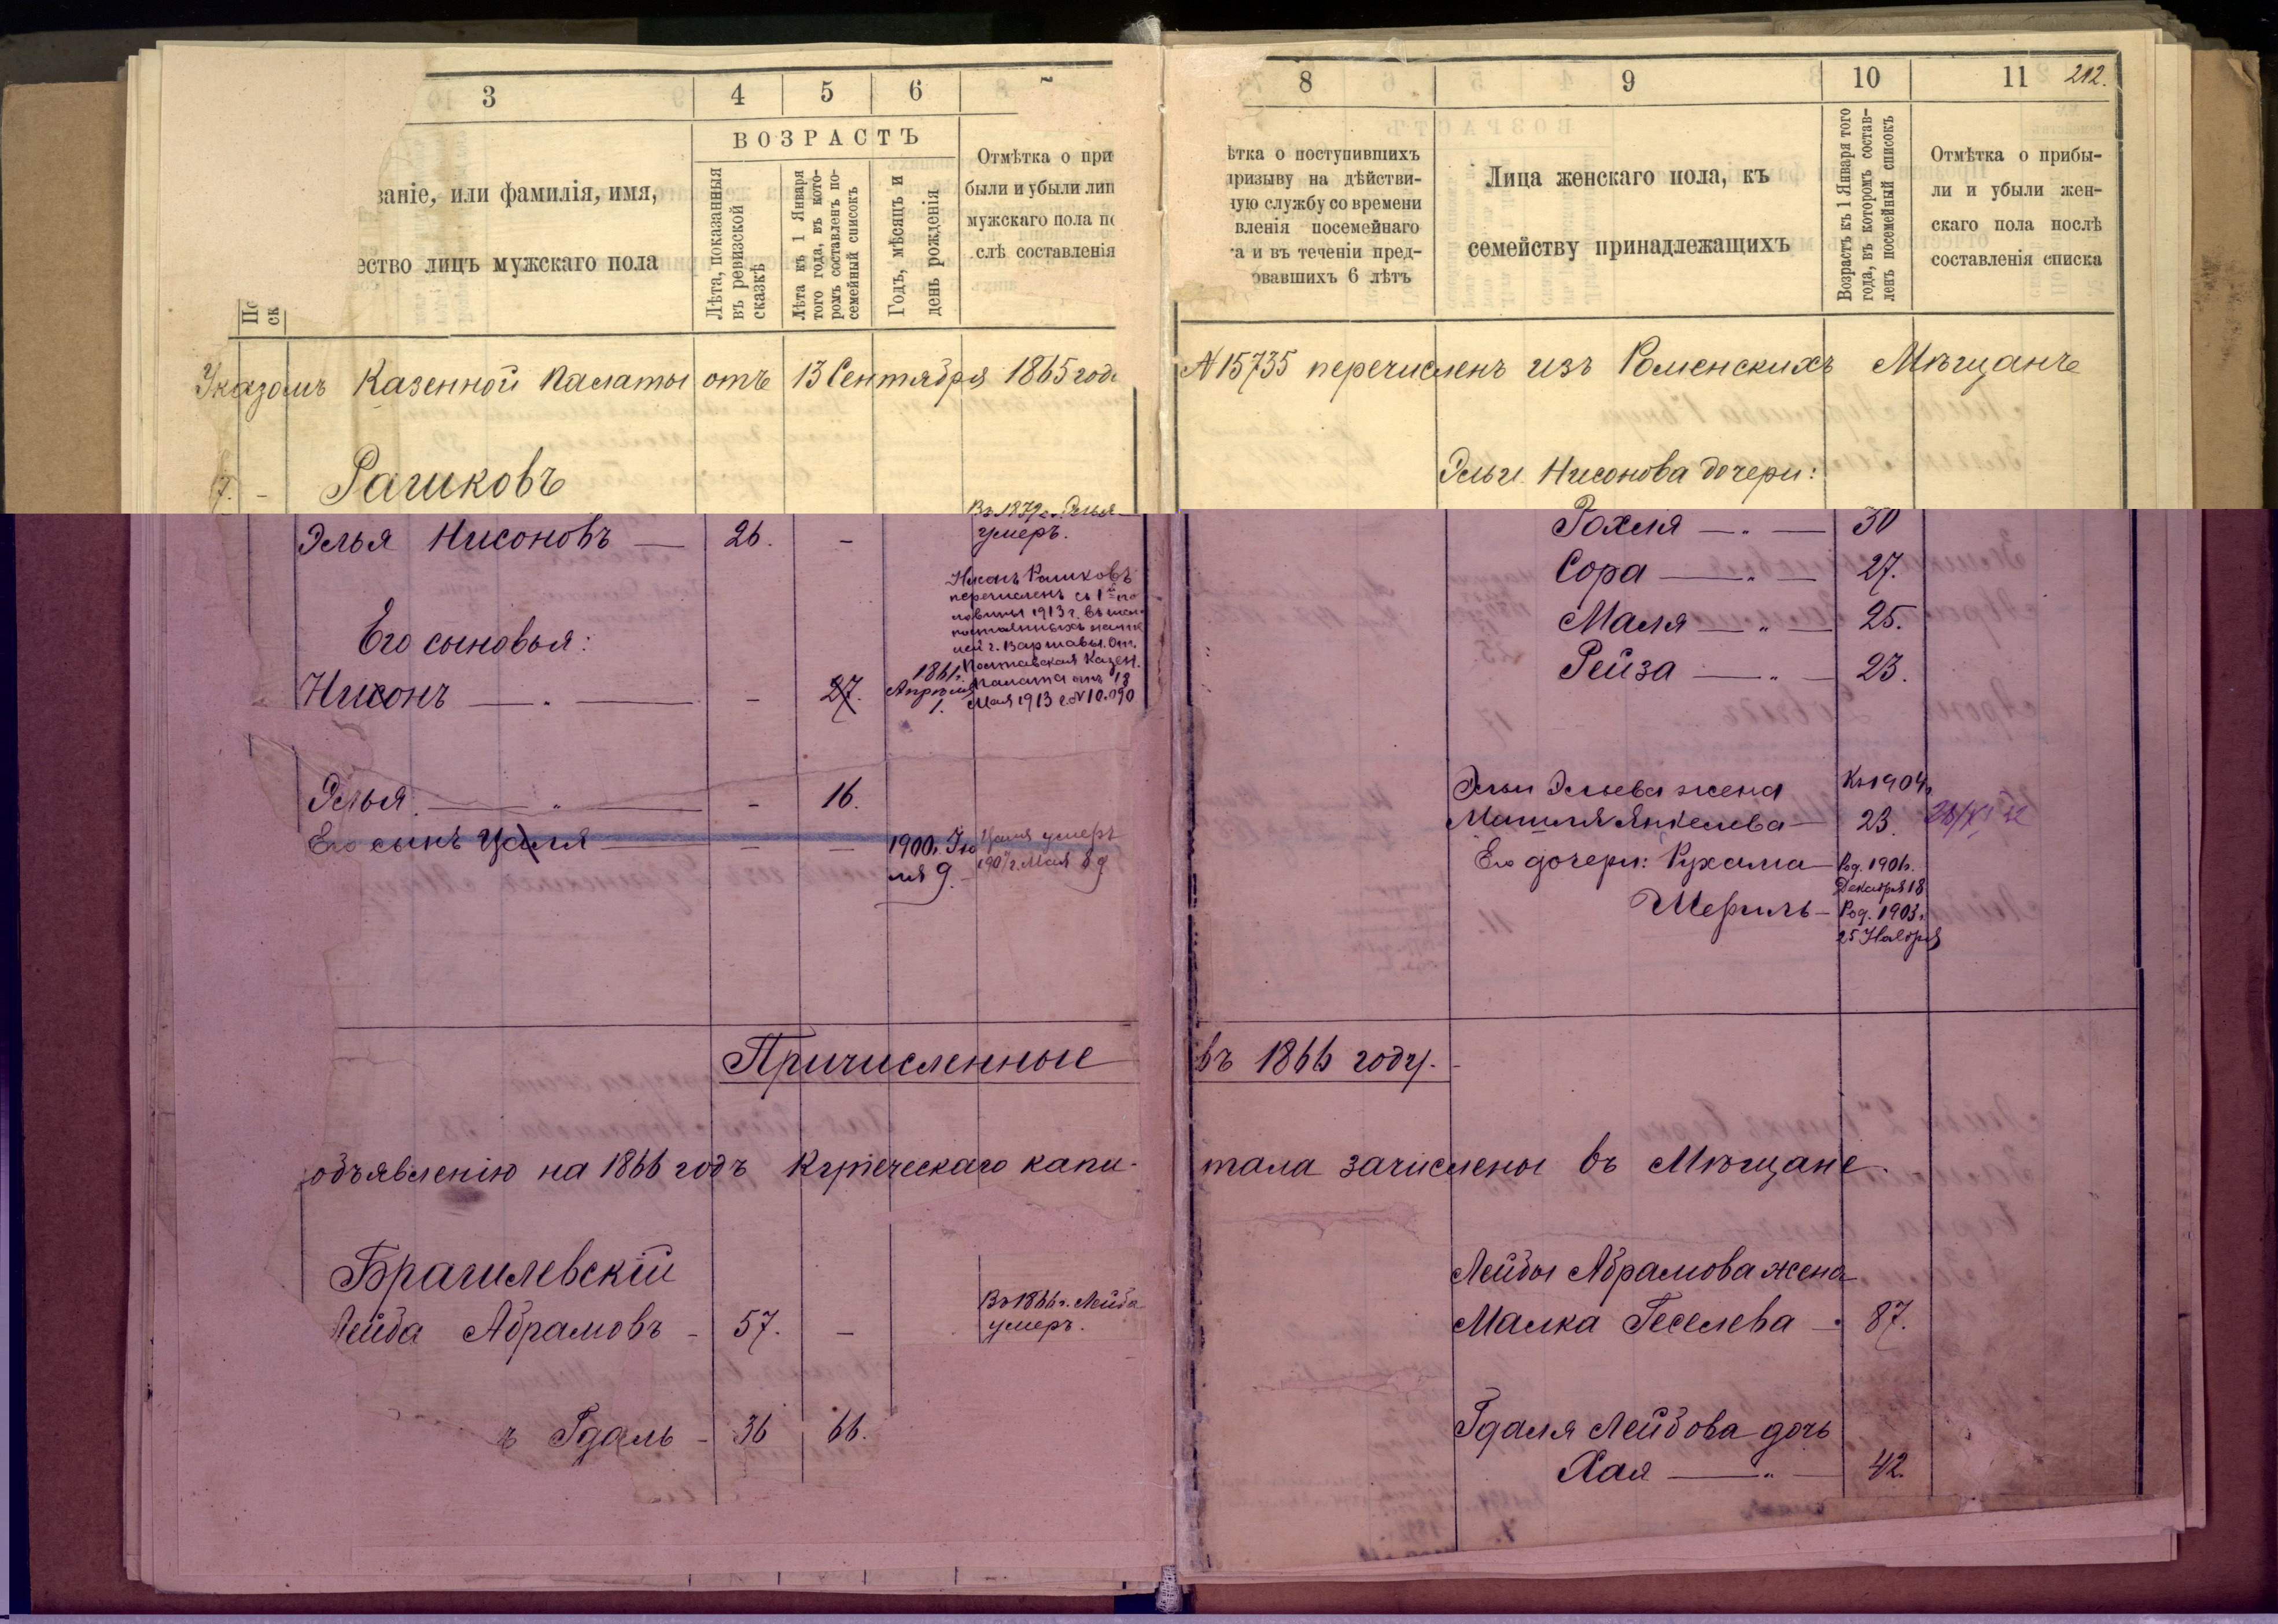 3
4
5
6
8
9
10
11
212.
ВОЗРАСТЪ
ваніе, или фамилія, имя,
ество лицъ мужскаго пола
Лѣта, показанныя
въ ревизской
сказкѣ
Лѣта къ 1 Января
того года, въ кото-
ромъ составленъ по-
семейный списокъ
Годъ, мѣсяцъ и
день рожденія
Отмѣтка о при
были и убыли лиц
мужскаго пола по
слѣ составленія
ѣтка о поступившихъ
призыву на дѣйстви-
ную службу со времени
вленія посемейнаго
а и въ теченіи пред-
овавшихъ 6 лѣтъ
Лица женскаго пола, къ
семейству принадлежащихъ
Возрастъ къ 1 Января того
года, въ которомъ состав-
ленъ посемейный списокъ
Отмѣтка о прибы-
ли и убыли жен-
скаго пола послѣ
составленія списка
Указомъ Казенной Палаты отъ 13 Сентября 1865 года
N 15735 перечисленъ изъ Роменскихъ Мѣщанъ
7. - Рашковъ
Эльи Нисонова дочери:
Элья Нисоновъ — 26. -
Въ 1879 г. Элья
умеръ.
Рохля — „ — 30
Сора — „ — 27.
Маля — „ — 25.
Рейза — „ — 23.
Его сыновья:
Нисонъ — „ — - 27. 1861 г.
Апрѣля
1.
Нисонъ Рашковъ
перечисленъ съ 1й по
ловины 1913 г. въ
лей г. Варшавы. От.
Полтавская Казен.
Палата отъ 18
Мая 1913 г. N 10.190
Элья — „ — - 16.
Его сынъ Цаля — - — 1900 г. Ію
ля 9.
Цаля умеръ
1901 г. Мая 8 д
Эльи Эльева жена Къ 1904 г.
Матля Янкелева — 23.
Его дочери: Рухама — Род. 1901 г.
Декабря 18
Шериль — Род. 1903 г.
25 Ноября
Причисленные въ 1866 году. -
объявленію на 1866 годъ Купеческаго капи-
тала зачислены въ Мѣщане.
Брагилевскій
Лейба Абрамовъ - 57. -
Въ 1866 г. Лейба
умеръ.
Лейбы Абрамова жена
Малка Геселева - 87.
ъ Гдаль - 36 66.
Гдаля Лейбова дочь
Хая — „ — 42.